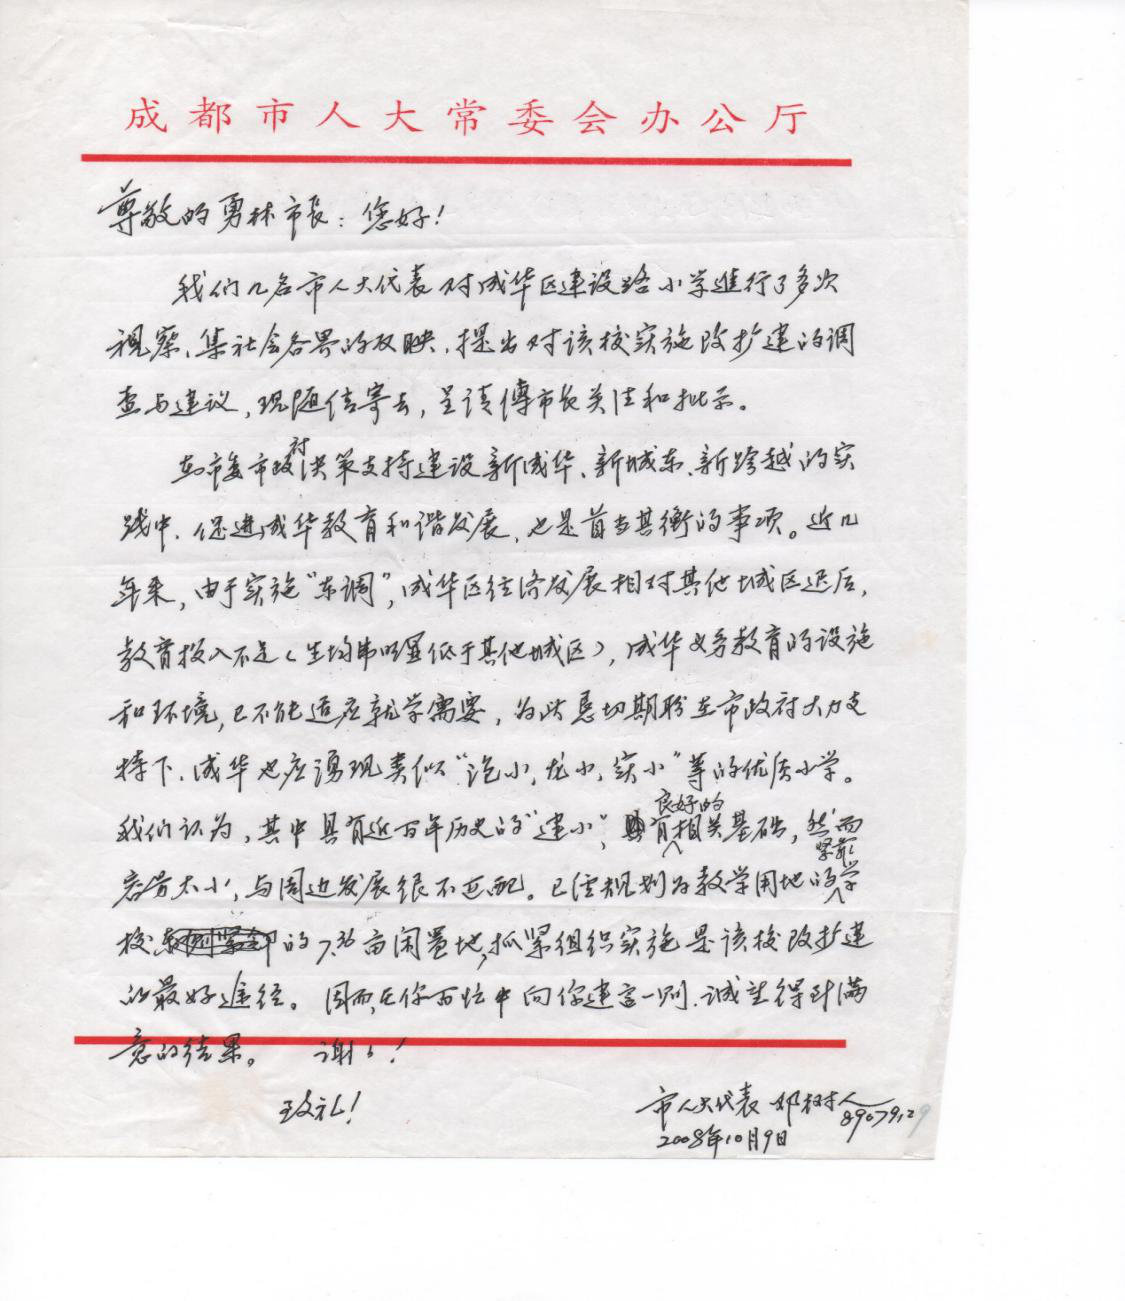 成都市人大常委会办公厅
尊敬的勇林市长：您好！
我们几名市人大代表对成华区建设路小学进行了多次
视察、集社会各界的反映，提出对该校实施改扩建的调
查与建议，现随信寄去，呈请傅市长关注和批示。
在市委市政府决策支持建设新成华、新城东、新跨越的实
践中，促进成华教育和谐发展，也是首当其衡的事项。近几
年来，由于实施“东调”，成华区经济发展相对其他城区迟后，
教育投入不足（生均串明显低于其他城区），成华义务教育的设施
和环境，已不能适应就学需要，为此恳切期盼在市政府大力支
持下，成华也应涌现类似“泡小，龙小，实小”等的优质小学。
我们认为，其中具有近百年历史的“建小”，具有良好的相关基础，然而
容貌太小，与周边发展很不匹配。已经规划为教学用地的紧靠学
校的7.36亩闲置地，抓紧组织实施是该校改扩建
的最好途径。因而，在你百忙中向你建言一则，诚望得到满
意的结果。 谢谢！
致礼！
市人大代表 邓树人
89079129
2008年10月9日